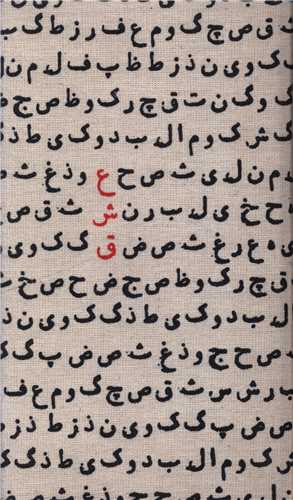 ث ق ص چ گ و م ع ف ر ز ط گ ب
ک و ی ن ذ ز ط ظ پ ف ل م ن
گ و گ ن ت ق چ ر ک و ظ ص ج
گ ش ک و م ا ل ب د و ک ی ط ذ
م ن ل ی ث ص ح ع و ذ غ ث
ه ح خ ی ل ب ر ن ش ث ق ص
ی ه ع ر غ ث ص ض ق گ ک و ی
ق چ ر ک و ظ ص ج ض ح ص خ ث
ا ل ب د و ک ی ط ذ گ ک و ی ن ذ
ث ص ح ج و ذ غ ث ص ض پ گ ک
ب ر ش س ث ق ص چ گ و م ع ف
ص ض پ گ ک و ی ن ذ ز ط ذ ز
ش ک و م ا ل ب د و ک ی ط ذ گ ک